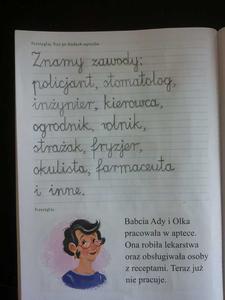 Przeczytaj. Pisz po śladach wyrazów.
Znamy zawody:
policjant, stomatolog,
inżynier, kierowca,
ogrodnik, rolnik,
strażak, fryzjer,
okulista, farmaceuta
i inne.
Przeczytaj.
Babcia Ady i Olka
pracowała w aptece.
Ona robiła lekarstwa
oraz obsługiwała osoby
z receptami. Teraz już
nie pracuje.